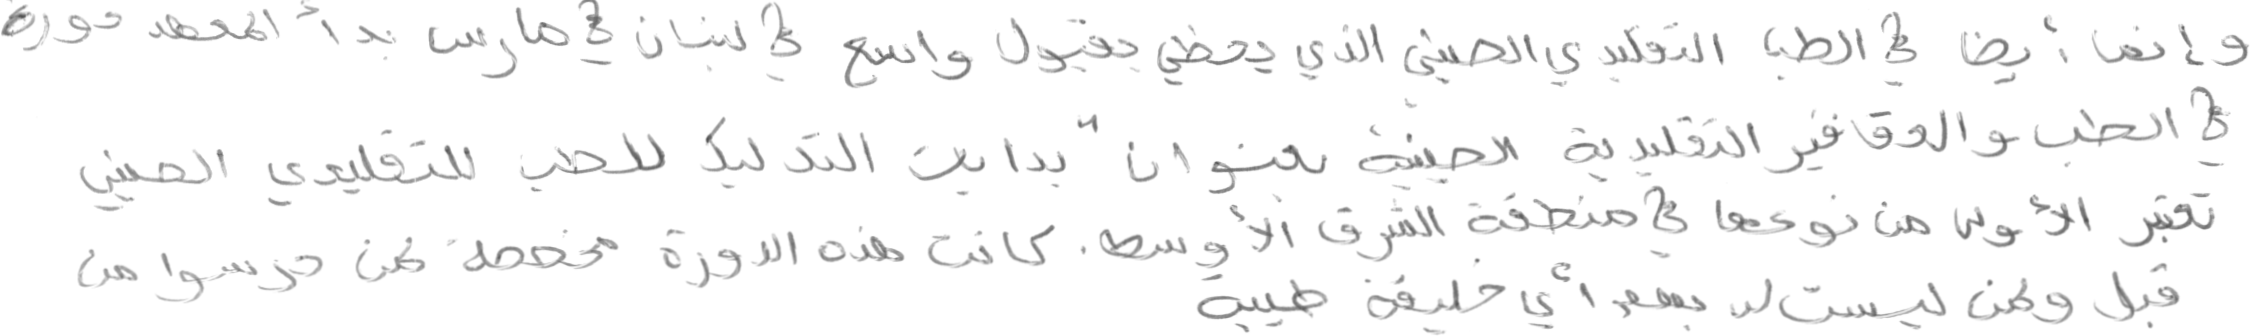 وإنما أيضا في الطب التقليدي الصيني الذي يحظي بقبول واسع في لبنان في مارس بدأ المعهد دورة
في الطب والعقاقير التقليدية الصينية بعنوان " بدايات التدليك للطب للتقليدي الصيني
تعتبر الأولى من نوعها في منطقة الشرق الأوسط. كانت هذه الدورة مخصصة لمن درسوا من
قبل ولمن ليست لديهم أي خليفة طبية